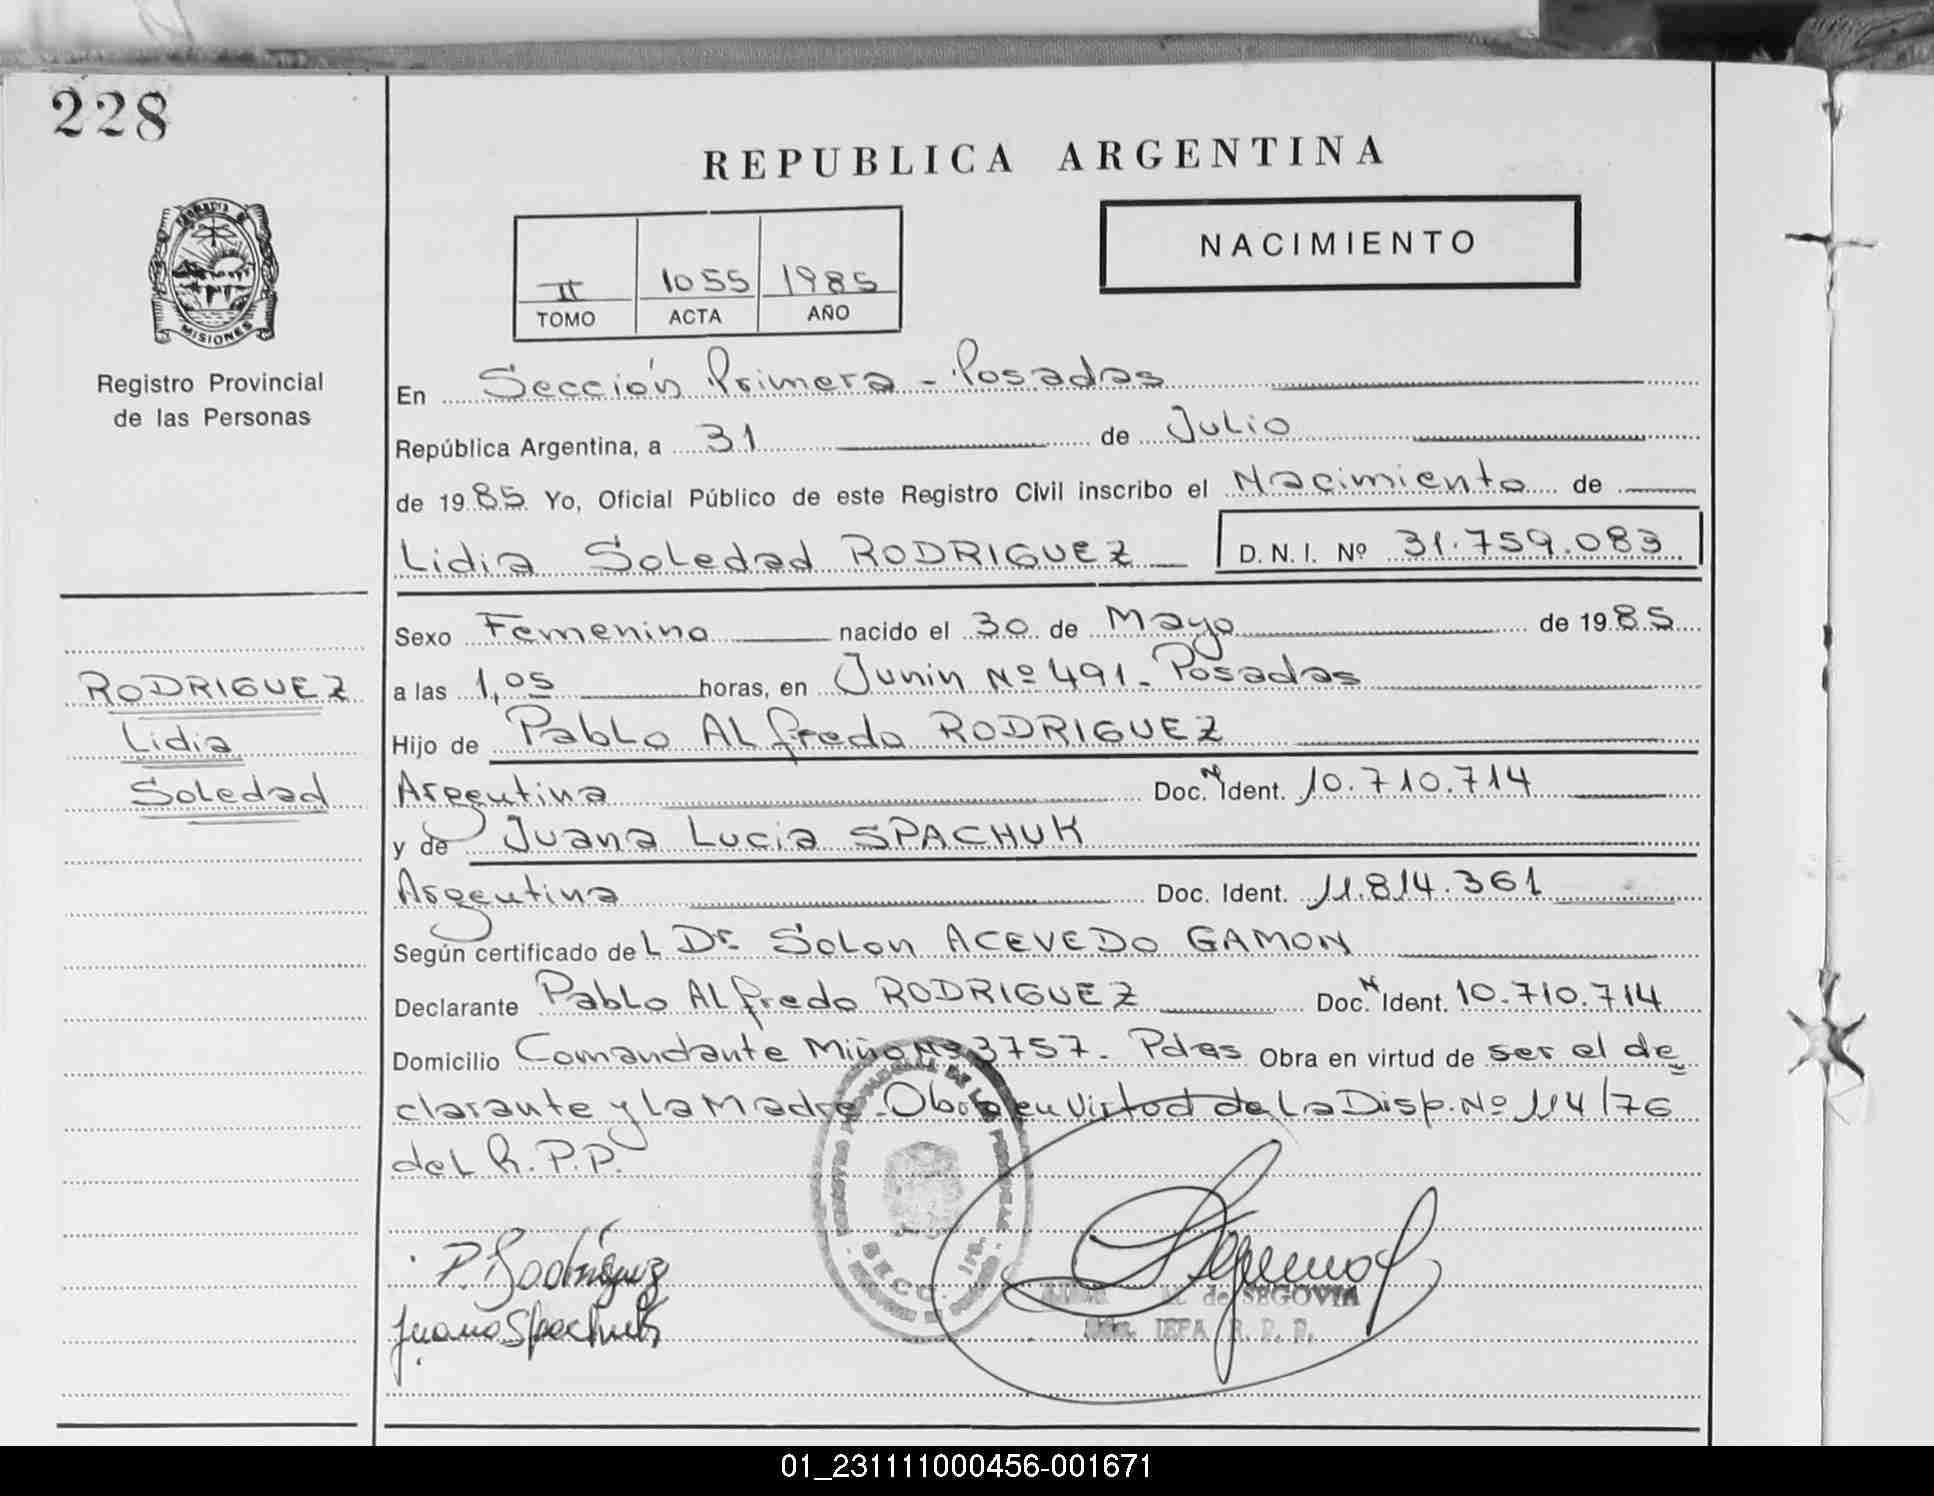 228
REPUBLICA ARGENTINA
NACIMIENTO
II 1055 1985
TOMO ACTA AÑO
MISIONES
Registro Provincial
de las Personas
En Sección Primera - Posadas
República Argentina, a 31 de Julio
de 1985 Yo, Oficial Público de este Registro Civil inscribo el Nacimiento de
Lidia Soledad RODRIGUEZ D. N. I. Nº 31.759.083
Sexo Femenino nacido el 30 de Mayo de 1985
a las 1,05 horas, en Junin Nº 491 - Posadas
Hijo de Pablo Alfredo RODRIGUEZ
Argentina Doc. N Ident. 10.710.714
y de Juana Lucia SPACHUK
Argentina Doc. Ident. 11.814.361
Según certificado del Dr. Solon ACEVEDO GAMON
Declarante Pablo Alfredo RODRIGUEZ Doc. N Ident. 10.710.714
Domicilio Comandante Miño Nº 3757 - Pdas Obra en virtud de ser el de
clarante y la Madre - Obra en virtud de la Disp. Nº 114/76
del R.P.P.
RODRIGUEZ
Lidia
Soledad
P. Rodríguez
Juana Spachuk
SECC. 1ra.
de SEGOVIA
JEFA R. P. P.
01_231111000456-001671